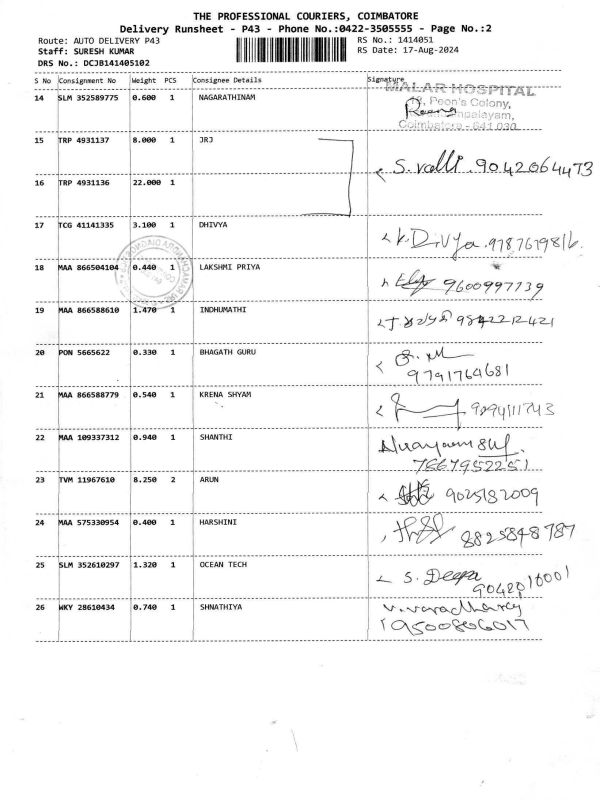 THE PROFESSIONAL COURIERS, COIMBATORE
Delivery Runsheet - P43 - Phone No.:0422-3505555 - Page No.:2
Route: AUTO DELIVERY P43 RS No.: 1414051
Staff: SURESH KUMAR RS Date: 17-Aug-2024
DRS No.: DCJB141405102
S No Consignment No Weight PCS Consignee Details Signature
MALAR HOSPITAL
14 SLM 352589775 0.600 1 NAGARATHINAM
Peon's Colony,
Coimbatore - 641 030
15 TRP 4931137 8.000 1 JRJ
S. Valli . 9042064473
16 TRP 4931136 22.000 1
17 TCG 41141335 3.100 1 DHIVYA
K. Divya . 9787679816.
18 MAA 866504104 0.440 1 LAKSHMI PRIYA
9600997739
19 MAA 866588610 1.470 1 INDHUMATHI
9842212421
20 PON 5665622 0.330 1 BHAGATH GURU
9791764681
21 MAA 866588779 0.540 1 KRENA SHYAM
22 MAA 109337312 0.940 1 SHANTHI
7667952251
23 TVM 11967610 8.250 2 ARUN
9025182009
24 MAA 575330954 0.400 1 HARSHINI
8825848787
25 SLM 352610297 1.320 1 OCEAN TECH
S. Deepa
26 WKY 28610434 0.740 1 SHNATHIYA
9500806017